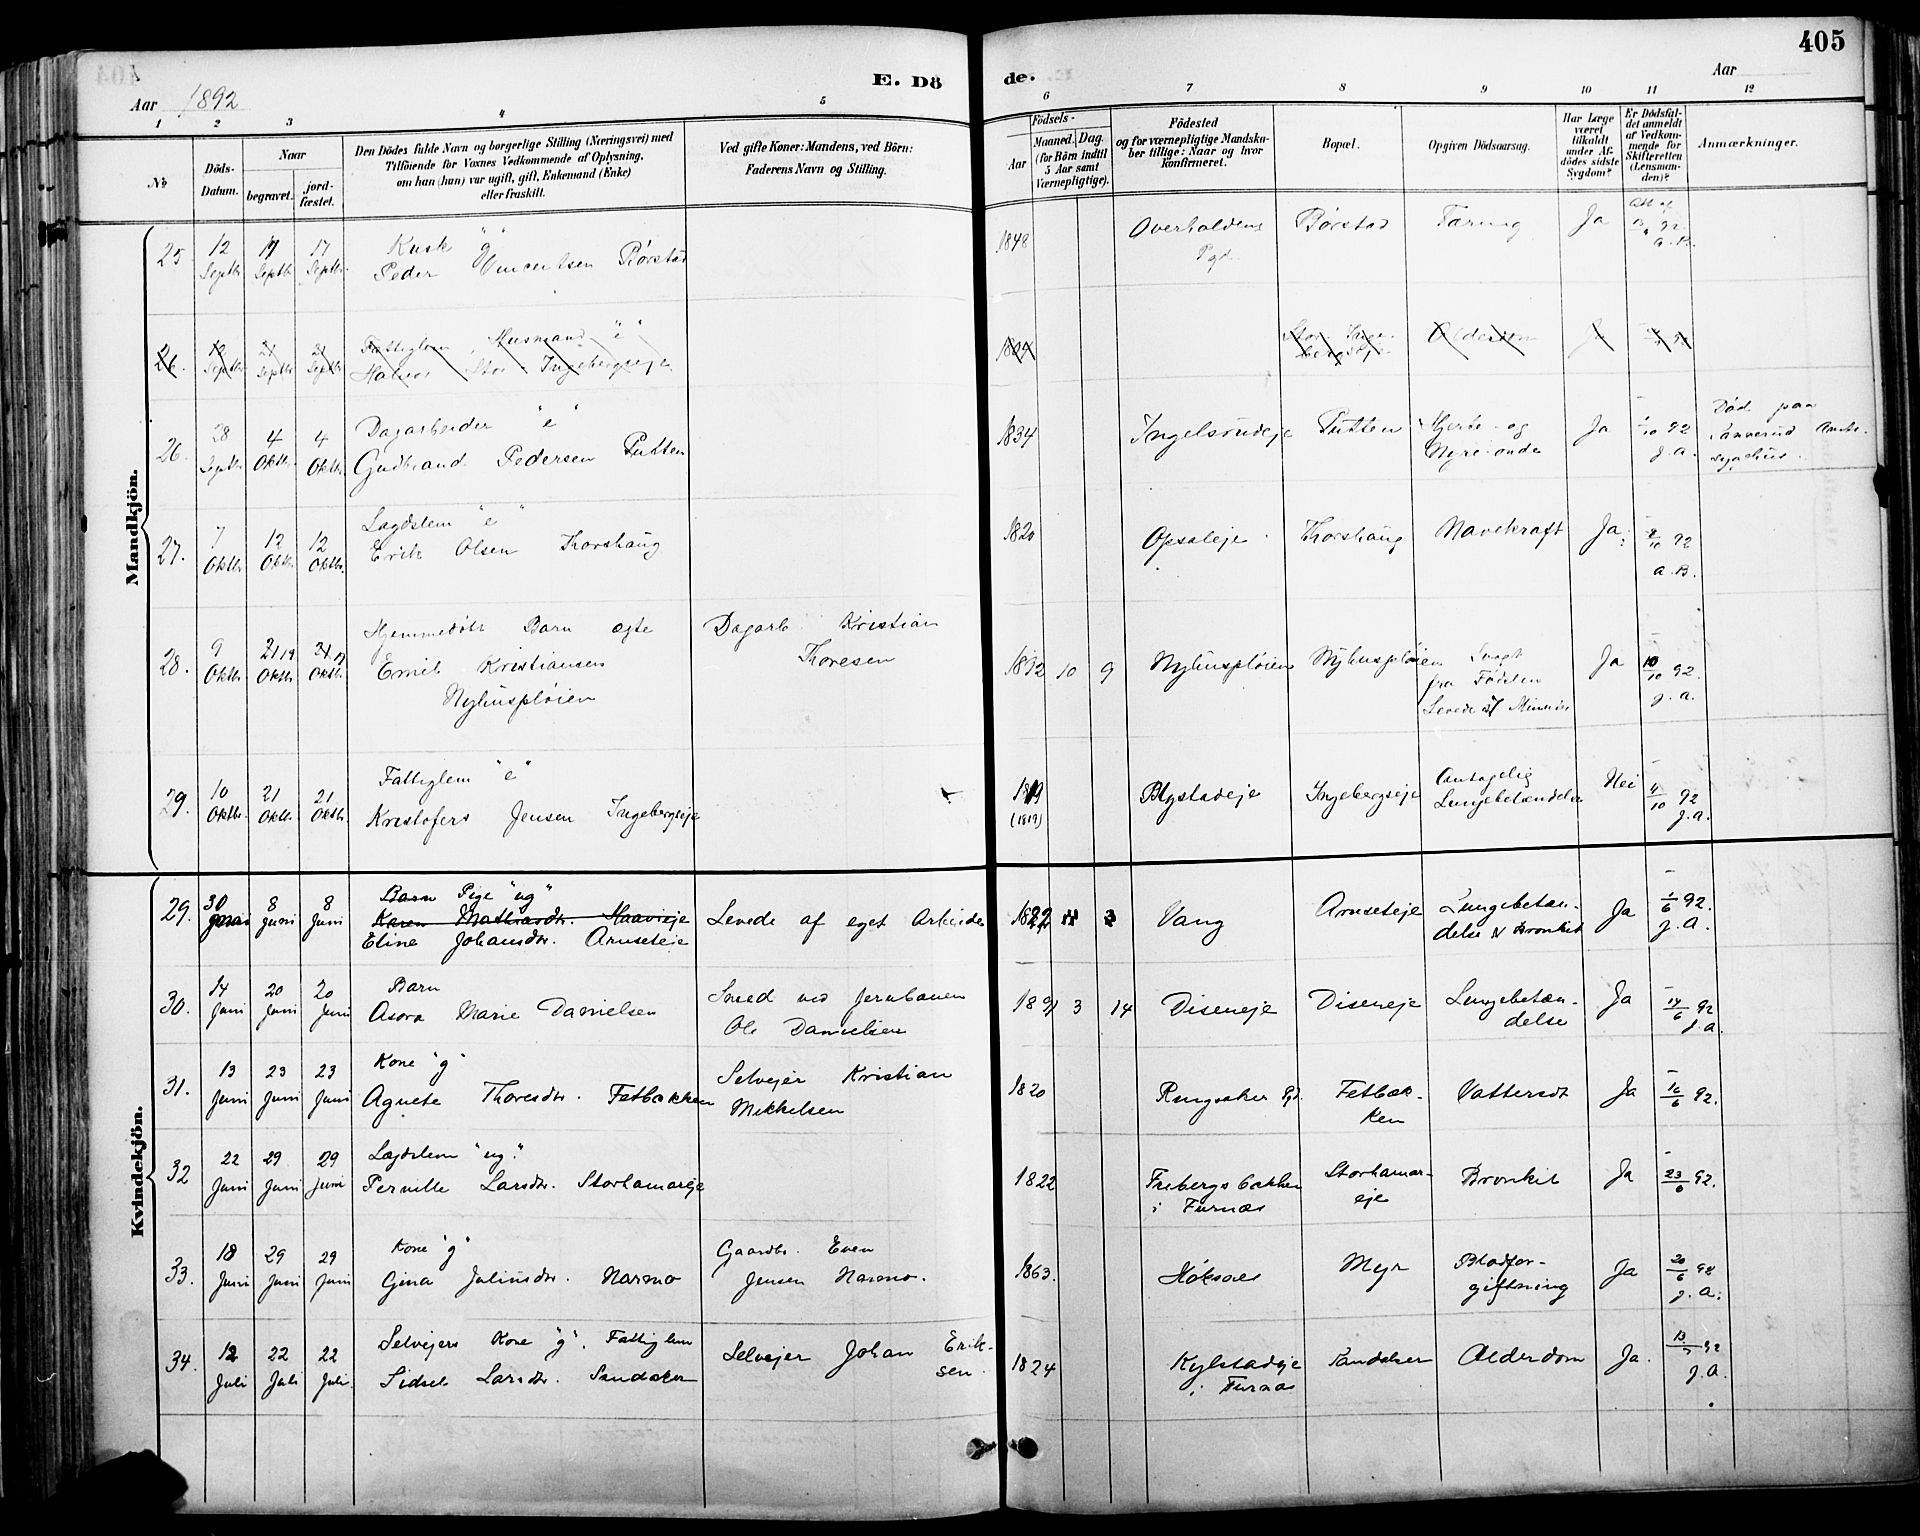 405
E. Döde.
Aar 1892
Aar
1 2 3 4 5 6 7 8 9 10 11 12
No
Döds-Datum.
Naar
begravet.
jordfæstet.
Den Dödes fulde Navn og borgerlige Stilling (Næringsvei) med
Tilföiende for Voxnes Vedkommende af Oplysning,
om han (hun) var ugift, gift, Enkemand (Enke)
eller fraskilt.
Ved gifte Koner: Mandens, ved Börn:
Faderens Navn og Stilling.
Födsels-
Aar
Maaned. Dag.
(for Börn indtil
5 Aar samt
Værnepligtige).
Födested
og for værnepligtige Mandska-
ber tillige: Naar og hvor
konfirmeret.
Bopæl.
Opgiven Dödsaarsag.
Har Læge
været
tilkaldt
under Af-
dödes sidste
Sygdom?
Er Dödsfal-
det anmeldt
af Vedkom-
mende for
Skifteretten
(Lensman-
den)?
Anmærkninger.
Mandkjön.
25 12 Septbr. 17 Septbr. 17 Septbr.
Kusk "g"
Peder Vincentsen Børstad
1848 Overhalden Pgd. Børstad Tæring Ja
92 a. B.
26. Septbr. 21 Septbr. 21 Septbr.
Fattiglem, Husmand "e"
Halvor Stor-Ingebergseje
1804 Stor Ingebergseje Alderdom Ja
26. 28 Septbr. 4 Oktbr. 4 Oktbr.
Dagarbeider "e"
Gudbrand Pedersen Putten
1834 Ingelsrudeje Putten Hjerte- og Nyre-onde Ja 1/10 92 J. A.
Død paa Sanderud Amtssygehus.
27. 7 Oktbr. 12 Oktbr. 12 Oktbr.
Lægdslem "e"
Erik Olsen Thorshaug
1820 Opsaleje Thorshaug Mavekræft Ja. 8/10 92 a. B.
28. 9 Oktbr. 21 19 Oktbr. 21 19 Oktbr.
Hjemmedøbt Barn ægte
Emil Kristiansen
Nyhuspløien
Dagarb. Kristian
Thoresen
1892 10 9 Nyhuspløien Nyhuspløien
Svagt
fra Fødslen
Levede 27 Minutter
Ja 10/10 92. J. A.
29. 10 Oktbr. 21 Oktbr. 21 Oktbr.
Fattiglem "e"
Kristofer Jensen Ingebergseje
1819
(1819)
Blystadeje Ingebergseje
Antagelig
Lungebetændelse
Nei 11/10 92 J. A.
Kvindekjön.
29. 30 Juni 8 Juni 8 Juni
Barn Pige "ug"
Karen Mathiasdtr. Haavieje
Eline Johansdtr. Arnseteje
Levede af eget Arbeide
1822 11 3 Vang Arnseteje
Lungebetæn-
delse & Bronkit
Ja 1/6 92. J. A.
30. 14 Juni 20 Juni 20 Juni
Barn
Asora Marie Danielsen
Smed ved Jernbanen
Ole Danielsen
1891 3 14 Diseneje Diseneje
Lungebetæn-
delse
Ja 14/6 92 J. A.
31. 13 Juni 23 Juni 23 Juni
Kone "g"
Agnete Thoresdtr. Fetbækken
Selvejer Kristian
Mikkelsen
1820 Ringsaker Pgd. Fetbæk-
ken
Vattersot Ja 16/6 92.
32 22 Juni 29 Juni 29 Juni
Lægdslem "ug."
Pernille Larsdtr. Storhamareje
1822 Fribergsbækken
i Furnæs
Storhamar-
eje
Bronkit Ja 23/6 92.
33. 18 Juni 29 Juni 29 Juni
Kone "g"
Gina Juliusdtr. Narmo
Gaardbr. Even
Jensen Narmo.
1863. Høksaas Myr
Blodfor-
giftning
Ja 20/6 92 J. A.
34. 12 Juli 22 Juli 22 Juli
Selvejers Kone "g". Fattiglem
Sidsel Larsdtr. Sandaker
Selvejer Johan Erik-
sen.
1824 Kylstadeje
i Furnæs
Sandaker Alderdom Ja. 13/7 92 J. A.